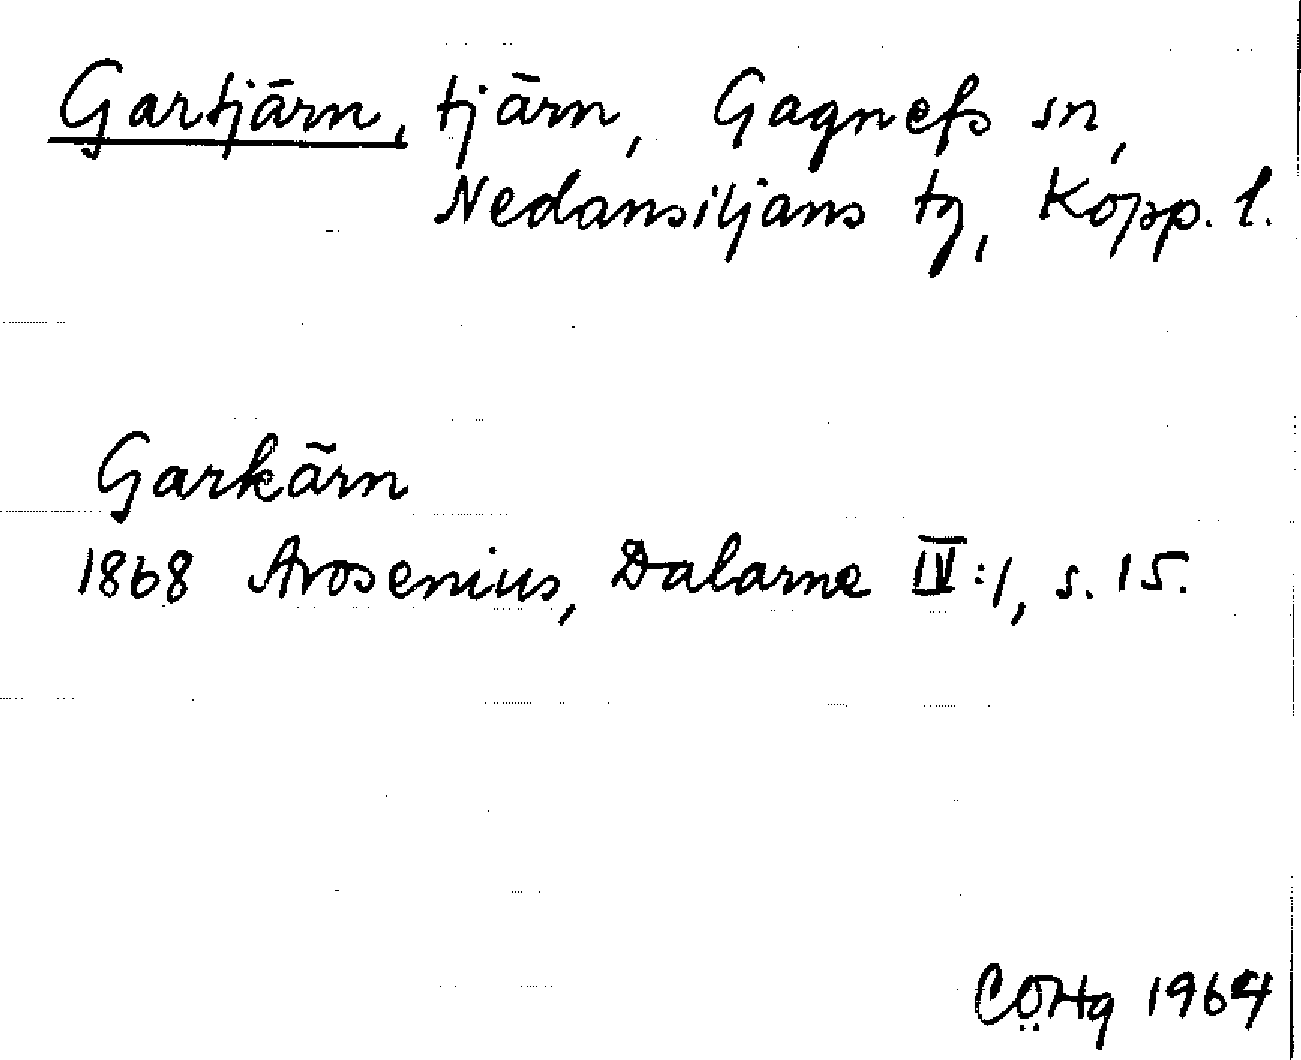 Gartjärn, tjärn, Gagnefs sn,
Nedansiljans tg, Kopp. l.
Garkärn
1868 Arosenius, Dalarne IV:1, s. 15.
CÖHg 1964